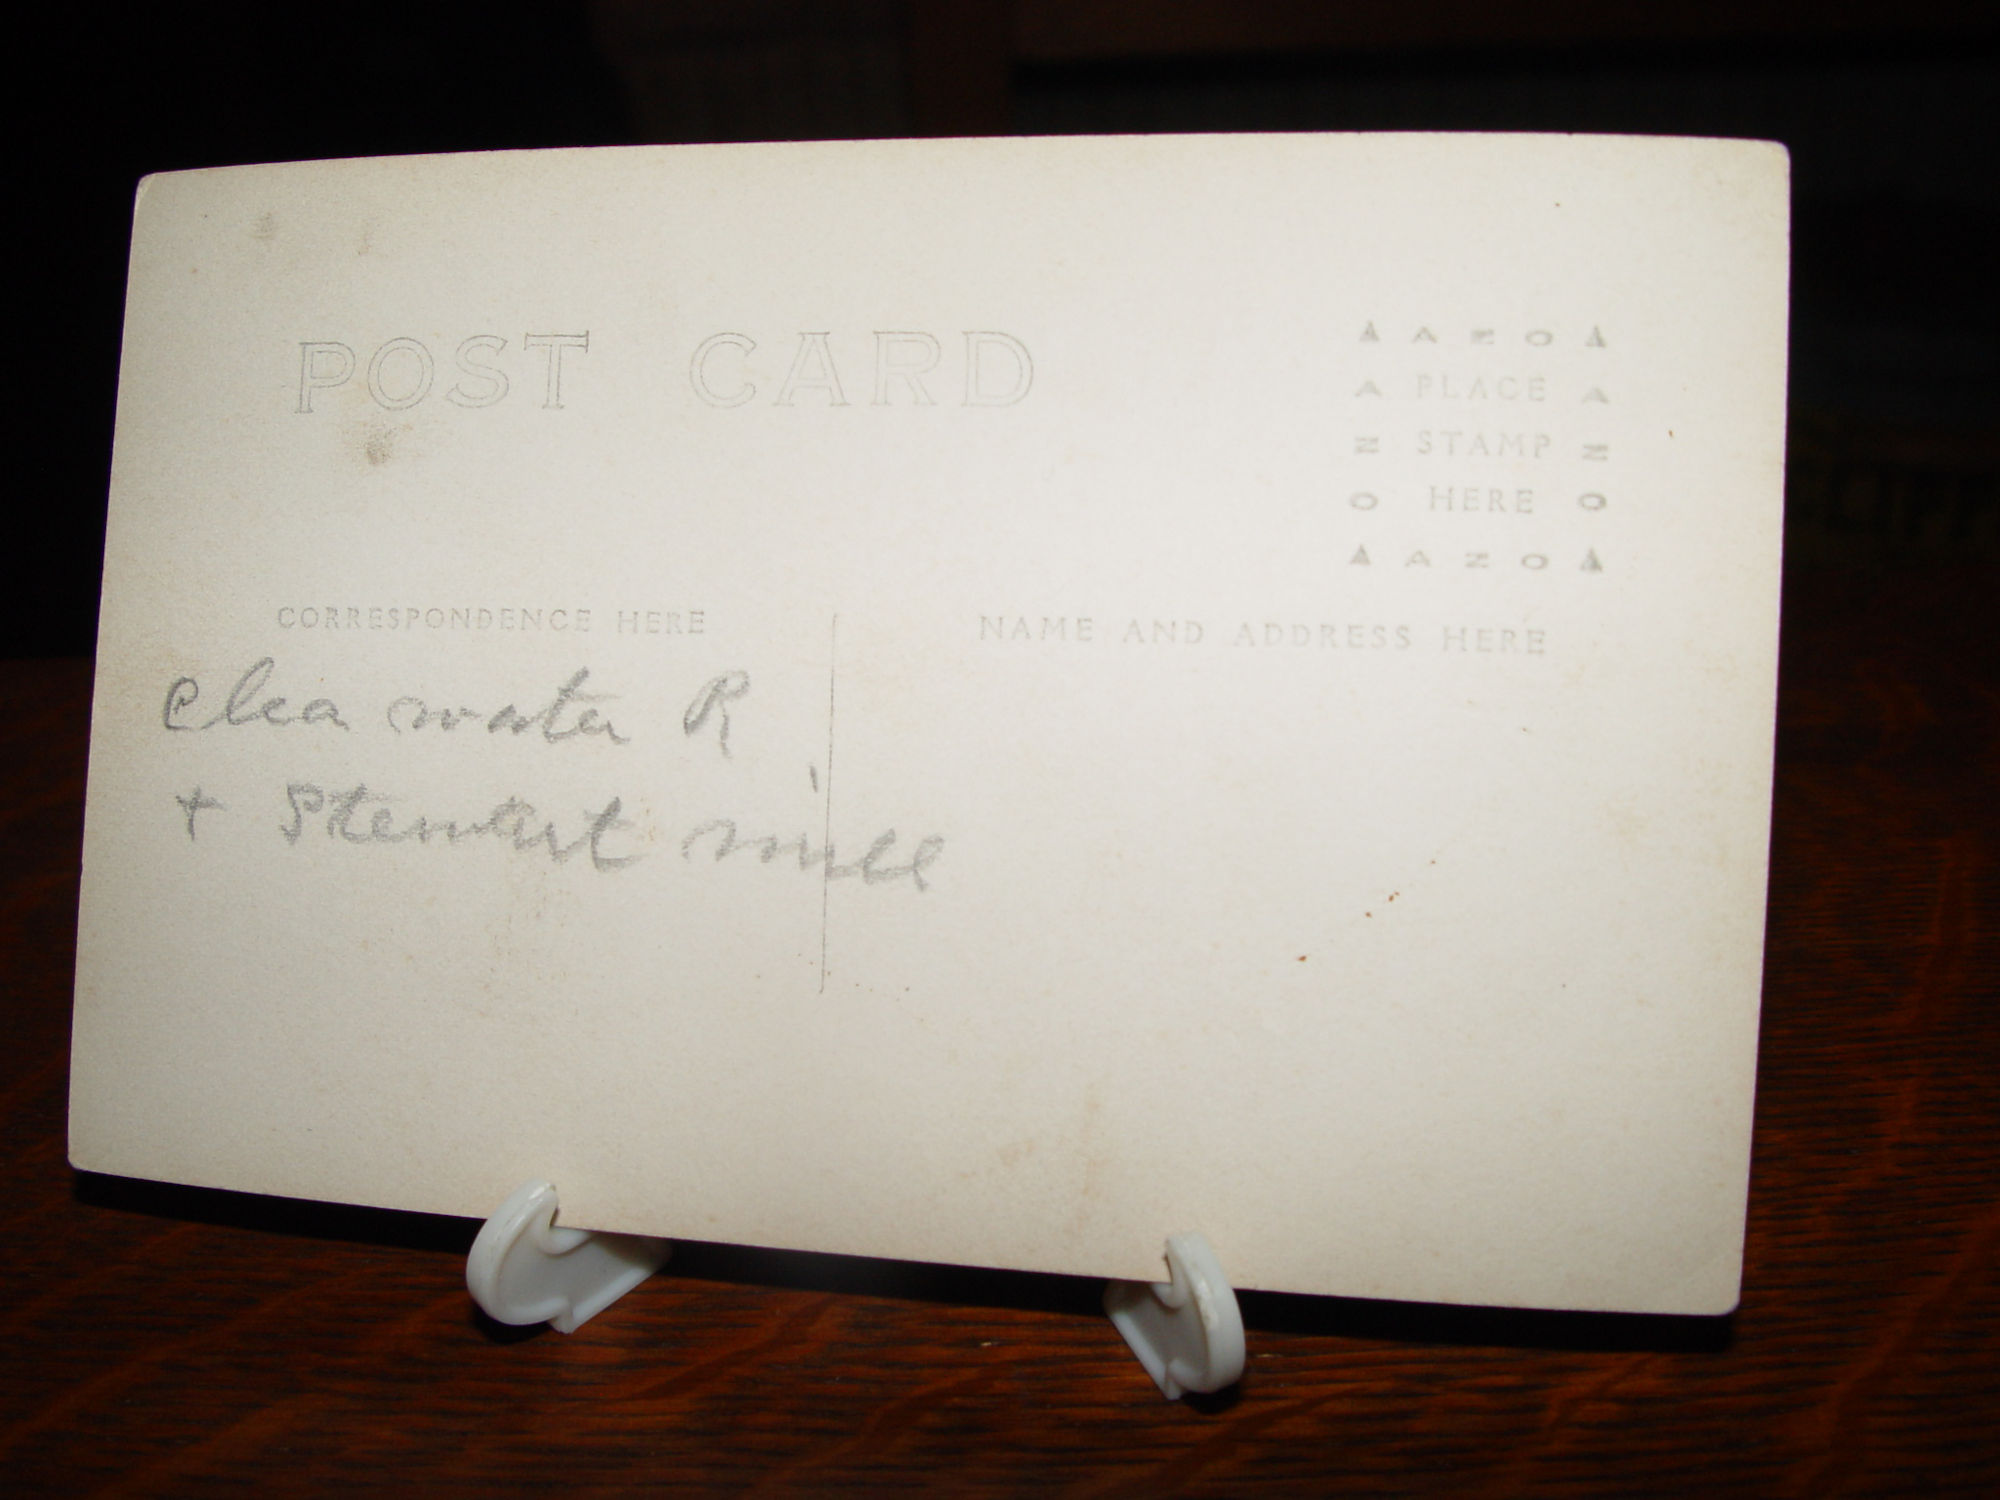 POST CARD
▲ A Z O ▲
A PLACE A
Z STAMP Z
O HERE O
▲ A Z O ▲
CORRESPONDENCE HERE
NAME AND ADDRESS HERE
Clea water R
+ Stewart mill